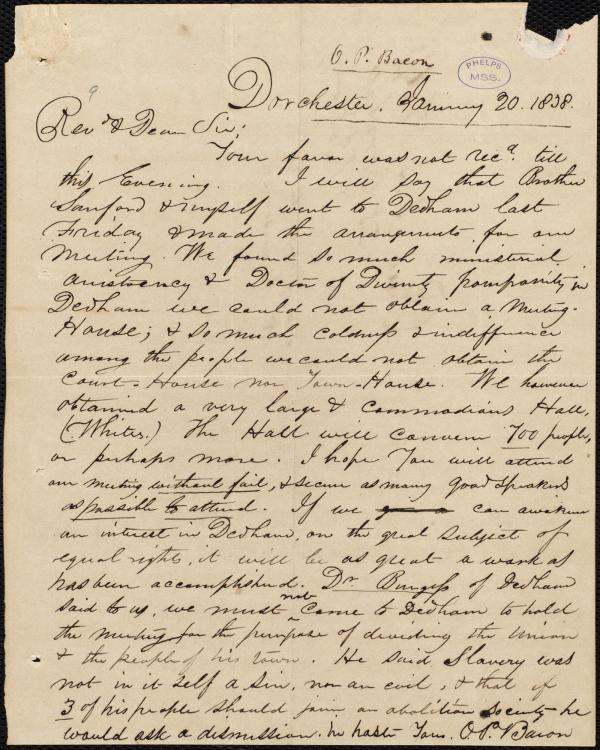 O. P. Bacon
PHELPS
MSS.
Dorchester, January 20. 1838.
Revd & Dear Sir;
Your favor was not recd. till
this Evening. I will say that Brother
Sanford & myself went to Dedham last
Friday & made the arrangements for our
Meeting. We found so much ministerial
aristocracy & Doctor of Divinity pomposity in
Dedham we could not obtain a Meeting-
House; & so much coldness & indifference
among the people we could not obtain the
Court-House nor Town-House. We however
obtained a very large & commodious Hall,
(Whites.) The Hall will convene 700 people,
or perhaps more. I hope You will attend
our meeting without fail, & secure as many good speakers
as possible to attend. If we can awaken
an interest in Dedham, on the great subject of
equal rights, it will be as great a work as
has been accomplished. Dr. Burgess of Dedham
said to us, we must not come to Dedham to hold
the meeting for the purpose of dividing the Union
& the people of his town. He said Slavery was
not in it self a sin, nor an evil, & that if
3 of his people should join an abolition society he
would ask a dismission. In haste Yours. O. P. Bacon